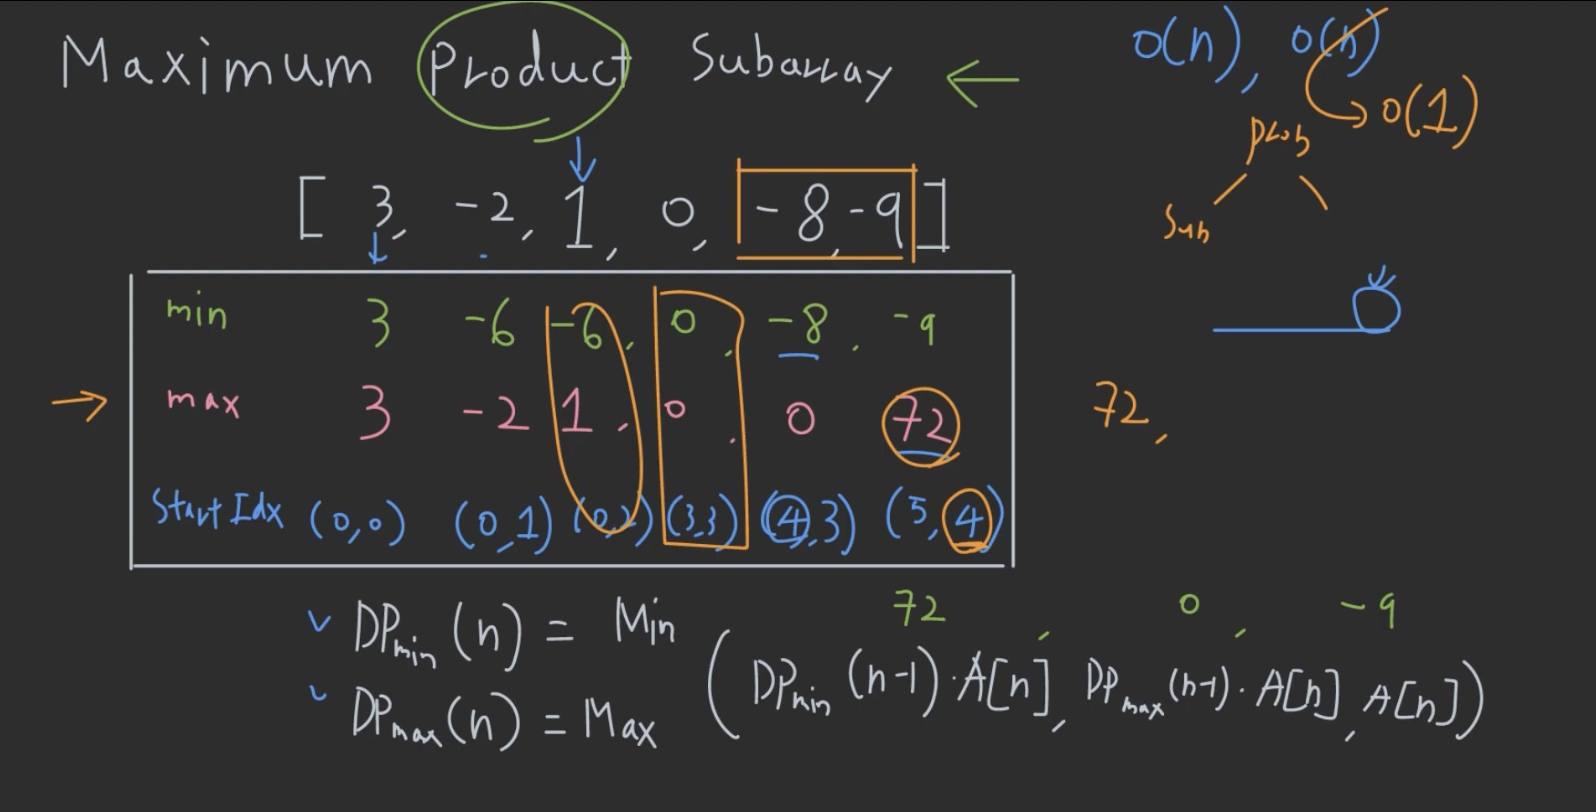 Maximum Product Subarray ← O(n), O(n) → O(1)
prob
sub
[ 3, -2, 1, 0, -8, -9 ]
min 3 -6 -6, 0, -8, -9
→ max 3 -2 1, 0, 0 72 72,
Start Idx (0,0) (0,1) (0,2) (3,3) (4,3) (5,4)
72, 0, -9
DPmin(n) = Min
(DPmin(n-1)·A[n], DPmax(n-1)·A[n], A[n])
DPmax(n) = Max